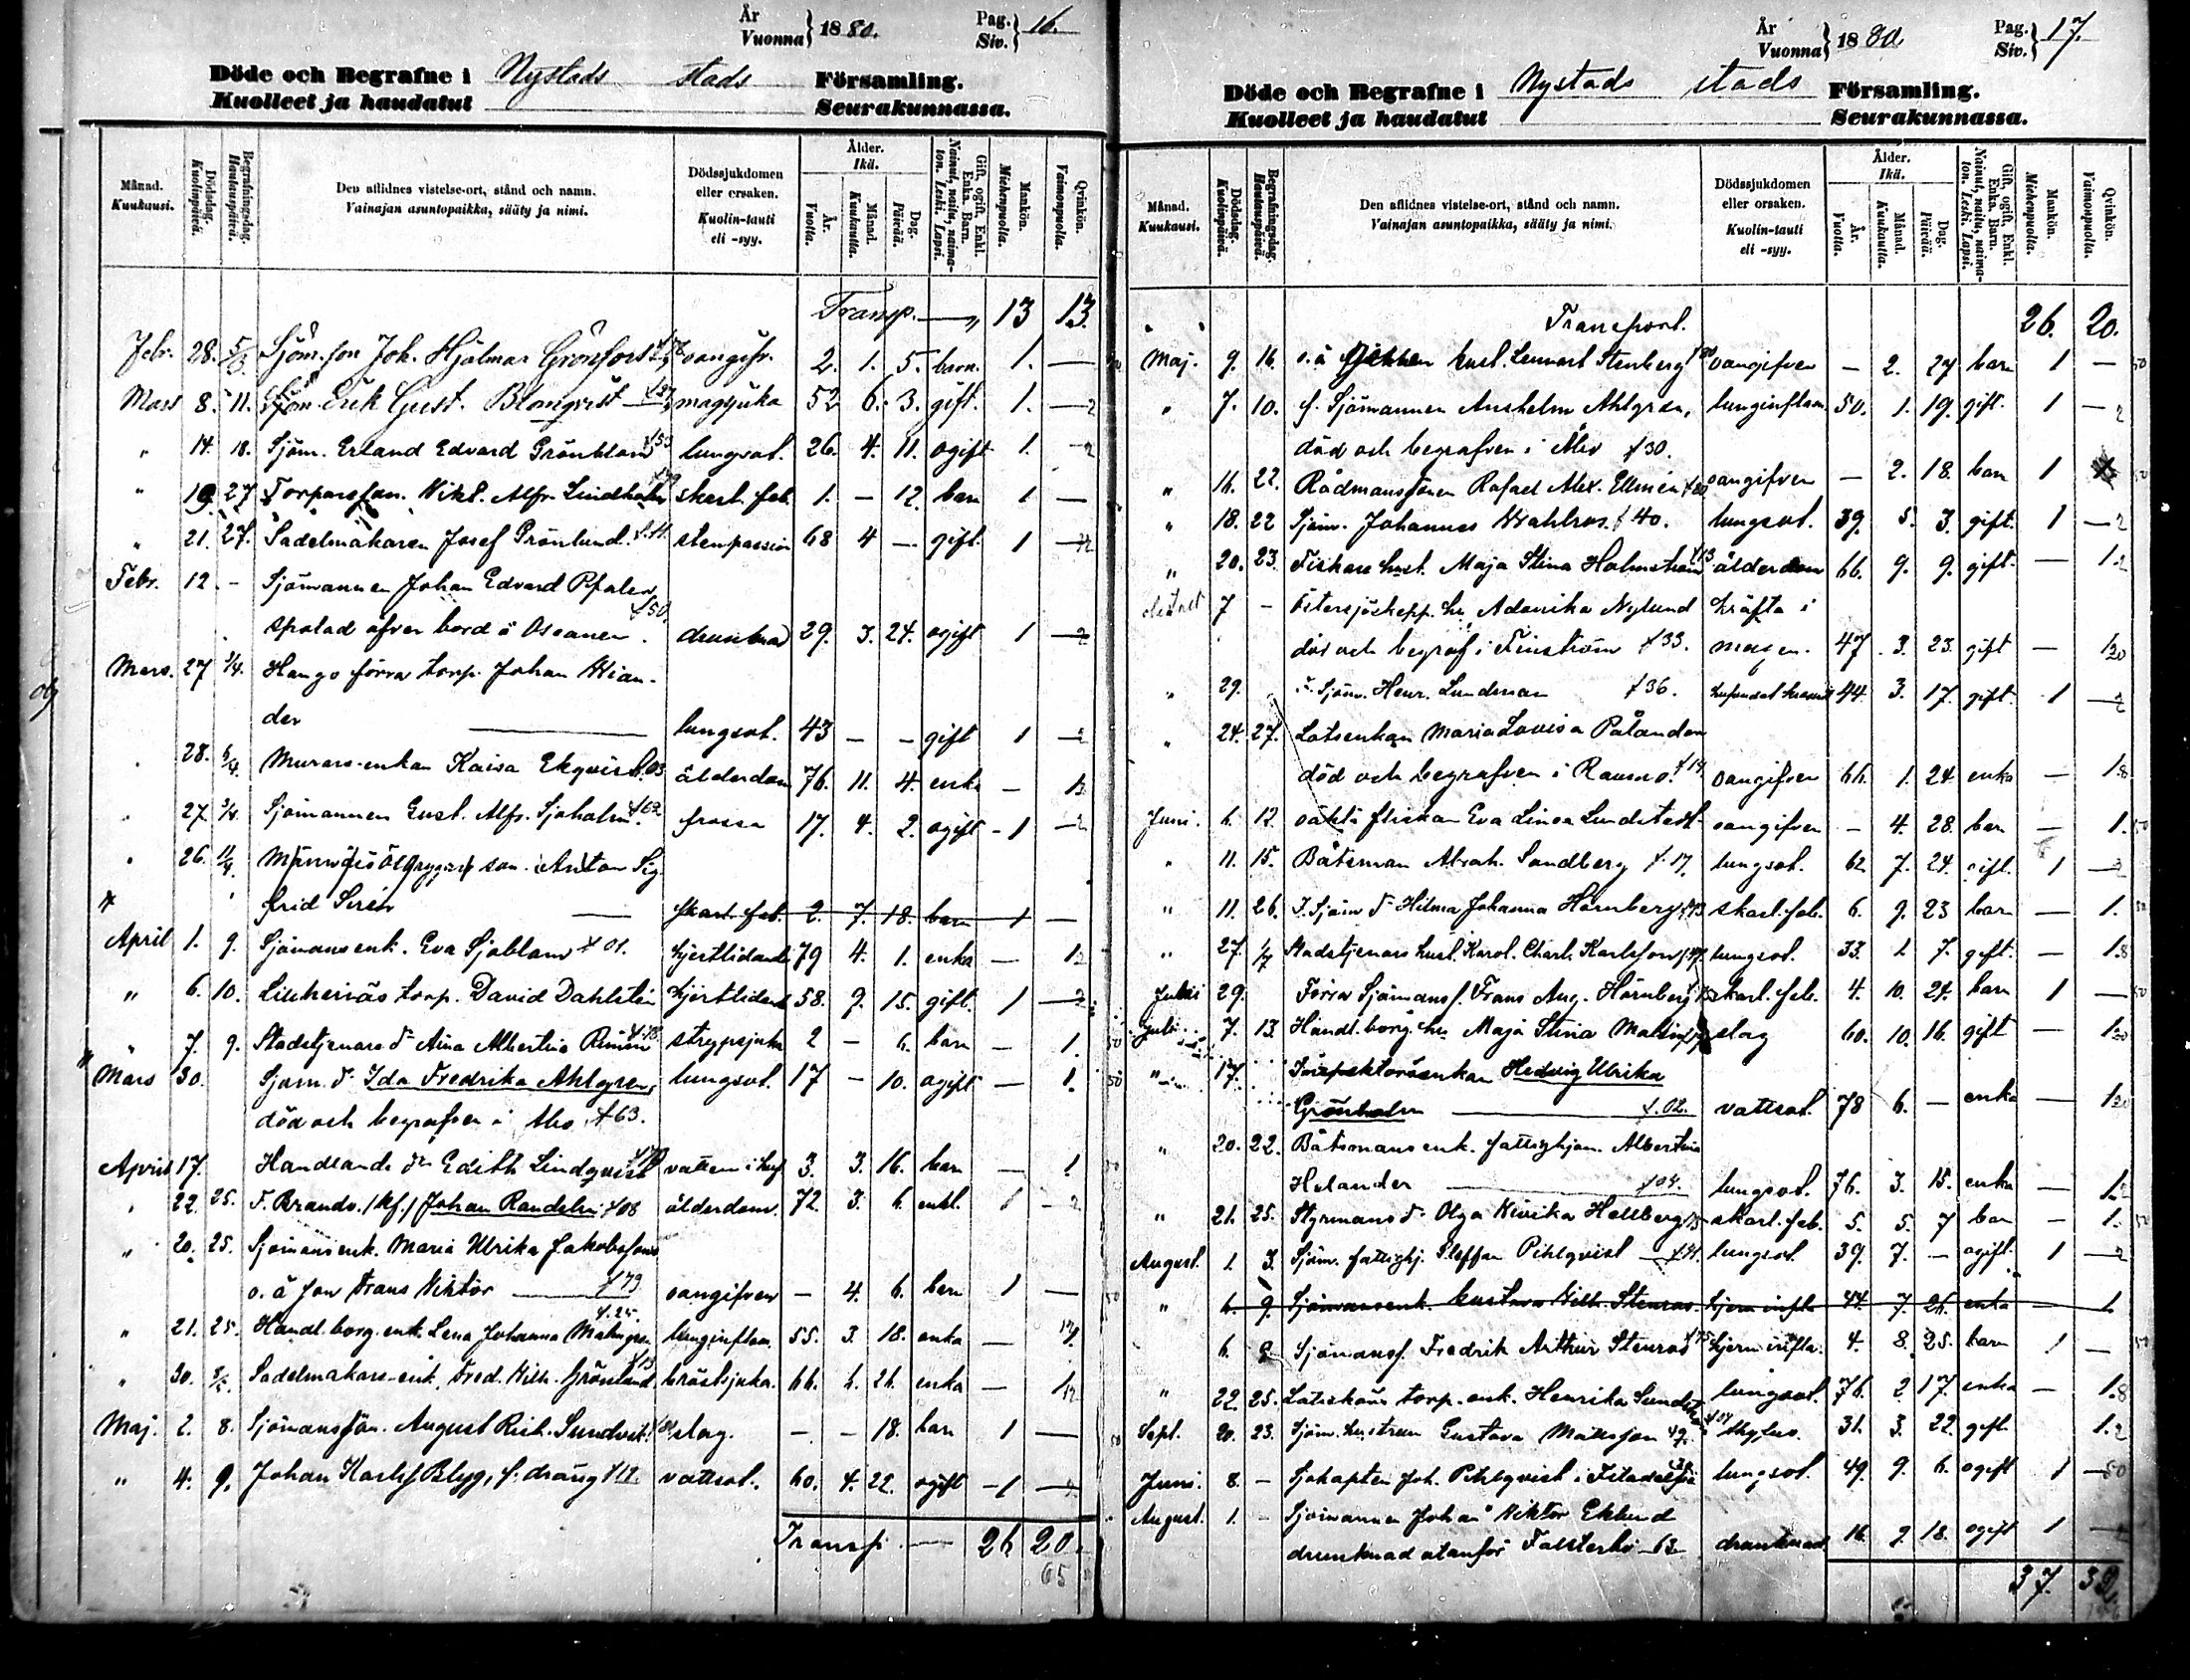 År
Vuonna } 1880.
Pag.
Siv. } 16.
Döde och Begrafne i Nystads stads Församling.
Kuolleet ja haudatut Seurakunnassa.
Månad. Kuukausi.
Dödsdag. Kuolinpäivä.
Begrafningsdag. Hautauspäivä.
Den aflidnes vistelse-ort, stånd och namn.
Vainajan asuntopaikka, sääty ja nimi.
Dödssjukdomen eller orsaken.
Kuolin-tauti eli -syy.
Ålder. Ikä.
År. Vuotta.
Månad. Kuukautta.
Dag. Päivää.
Gift, ogift, Enkl. Enka. Barn.
Nainut, naitu, naimaton. Leski. Lapsi.
Mankön. Miehenpuolta.
Qvinkön. Vaimonpuolta.
Transp. 13 13.
Febr. 28. 5/3 Sjöm. son Joh. Hjalmar Grönfors oangifv. 2. 1. 5. barn. 1. —
Mars 8. 11. Sjöm. Erik Gust. Blomqvist magsjuka 52 6. 3. gift. 1. —
" 14. 18. Sjöm. Erland Edvard Grönblom f 53 lungsot. 26. 4. 11. ogift 1. —
" 19. 27 Torpareson. Vikt. Alfr. Lindholm skarl. feb. 1. — 12. barn 1 —
" 21. 27. Sadelmakaren Josef Grönlund. f. 11. stenpassion 68 4 — gift. 1 —
Febr. 12. - Sjömannen Johan Edvard Pfaler
spolad öfver bord å Oseanen. f 50. drunknad 29. 3. 24. ogift 1 —
Mars. 27 3/4. Hango förra torp. Johan Wian-
der lungsot. 43 — — gift 1 —
" 28. 6/4 Murars-enkan Kaisa Ekqvist. 03 ålderdom 76. 11. 4. enka — 1
" 27. 3/4. Sjömannen Gust. Alfr. Sjöholm. f 62 frossa 17. 4. 2. ogift - 1 —
" 26. 11/4. son. Anton Sig-
frid Sirén skarl. feb. 2. 7. 18. barn 1 —
April 1. 9. Sjömansenk. Eva Sjöblom f 01. hjertlidande 79 4. 1. enka — 1
" 6. 10. torp. David Dahlstén hjertlidand 58. 9. 15. gift. 1 —
" 7. 9. Stadstjenare dr Aina Albertina strypsjuka 2 — 6. barn — 1.
Mars 30. Sjöm. dr Ida Fredrika Ahlgren, lungsot. 17 — 10. ogift — 1.
död och begrafven i Åbo f 63.
April 17. Handlande dr Edith Lindqvist vatten i huf 3. 3. 16. barn — 1
" 22. 25. F. Brandv. (kf.) Johan Randelin f 08 ålderdom. 72. 3. 6. enkl. 1 —
" 20. 25. Sjömansenk. Maria Ulrika Jakobssons
o. ä son Frans Viktor f 79 oangifven — 4. 6. barn 1 —
" 21. 25. Handl. borg. enk. Lena Johanna Malmgren f. 25. lunginflam. 55. 3. 18. enka — 1
" 30. 8/5. Sadelmakare-enk. Fred. Wilh. Grönlund f 13 bröstsjuka. 66. 6. 26. enka — 1
Maj. 2. 8. Sjömansson. August Rich. Sundvik. slag. — — 18. barn 1 —
" 4. 9. Johan Karlsf Blyg, f. dräng vattsot. 60. 4. 22. ogift — 1 —
Transp. — 26 20.
65

År
Vuonna } 1880.
Pag.
Siv. } 17.
Döde och Begrafne i Nystads stads Församling.
Kuolleet ja haudatut Seurakunnassa.
Månad. Kuukausi.
Dödsdag. Kuolinpäivä.
Begrafningsdag. Hautauspäivä.
Den aflidnes vistelse-ort, stånd och namn.
Vainajan asuntopaikka, sääty ja nimi.
Dödssjukdomen eller orsaken.
Kuolin-tauti eli -syy.
Ålder. Ikä.
År. Vuotta.
Månad. Kuukautta.
Dag. Päivää.
Gift, ogift, Enkl. Enka. Barn.
Nainut, naitu, naimaton. Leski. Lapsi.
Mankön. Miehenpuolta.
Qvinkön. Vaimonpuolta.
Transport. 26. 20.
Maj. 9. 16. o. ä Gust. Lennart Stenberg oangifven — 2. 27 barn 1 —
" 7. 10. f. Sjömannen Anshelm Ahlgren, lunginflam. 50. 1. 19. gift. 1 —
död och begrafven i Åbo f 30.
" 16. 22. Rådmanssonen Rafael Alex. Ellmén oangifven — 2. 18. barn 1
" 18. 22 Sjöm. Johannes Wahlros. f 40. lungsot. 39. 5. 3. gift. 1 —
" 20. 23. Fiskare hust. Maja Stina Holmström f 13 ålderdom 66. 9. 9. gift. — 1
7 - Östersjöskepp. hu. Adamika Nylund kräfta i
död och begraf. i Finström f 33. magen. 47. 3. 23. gift — 1
" 29. Sjöm. Henr. Lundman f 36. 44. 3. 17. gift. 1 —
" 24. 27. Lotsenkan Maria Lovisa Pålander
död och begrafven i Raumo. f 14 oangifven 66. 1. 24. enka — 1
Juni. 6. 12. oäkta flickan Eva Linea Lundstedt oangifven — 4. 28. barn — 1.
" 11. 15. Båtsman Abrah. Sandberg f. 17. lungsot. 62 7. 24. gift. 1 —
" 11. 26. F. Sjöm dr Hilma Johanna Hörnberg skarl. feb. 6. 9. 23 barn — 1.
" 27. 1/7 Stadstjenars hust. Karol. Charl. Karlsson lungsot. 33. 1 7. gift. — 1
Juni 29. Förra Sjömans s. Frans Aug. Hörnberg skarl. feb. 4. 10. 24. barn 1 —
Juli. 7. 13. Handl. borg. hu. Maja Stina Malin slag 60. 10. 16. gift — 1
" 17. Inspektorsenkan Hedvig Ulrika
Grönholm f. 02. vattsot. 78 6. — enka — 1
" 20. 22. Båtsmans enk. fattighjon. Albertina
Helander f 04. lungsot. 76. 3. 15. enka — 1
" 21. 25. Styrmans dr Olga Hellberg skarl. feb. 5. 5. 7 barn — 1.
August. 1. 3. Sjöm. fattighj. Steffan Pihlqvist f 41. lungsot. 39. 7. — ogift. 1 —
" 6. 9. Sjömansenk. Gustava Wilh. Stenros. hjern infla 44. 7. 26. enka — 1
6. 9 Sjömans s. Fredrik Arthur Stenros f 75 hjern infla. 4. 8. 25. barn 1 —
" 22. 25. torp. enk. Henrika lungsot. 76. 2 17. enka — 1.
Sept. 20. 23. Sjöm. hustrun Gustava Mattsson 49. 31. 3. 22. gift 1.
Juni. 8. - Sjökapten Joh. Pihlqvist i Filadelfia lungsot. 49. 9. 6. ogift 1 —
August. 1. - Sjömannen Johan Viktor Eklund
drunknad utanför Falsterbo 63 drunknad 16. 9. 18. ogift 1 —
37. 32.